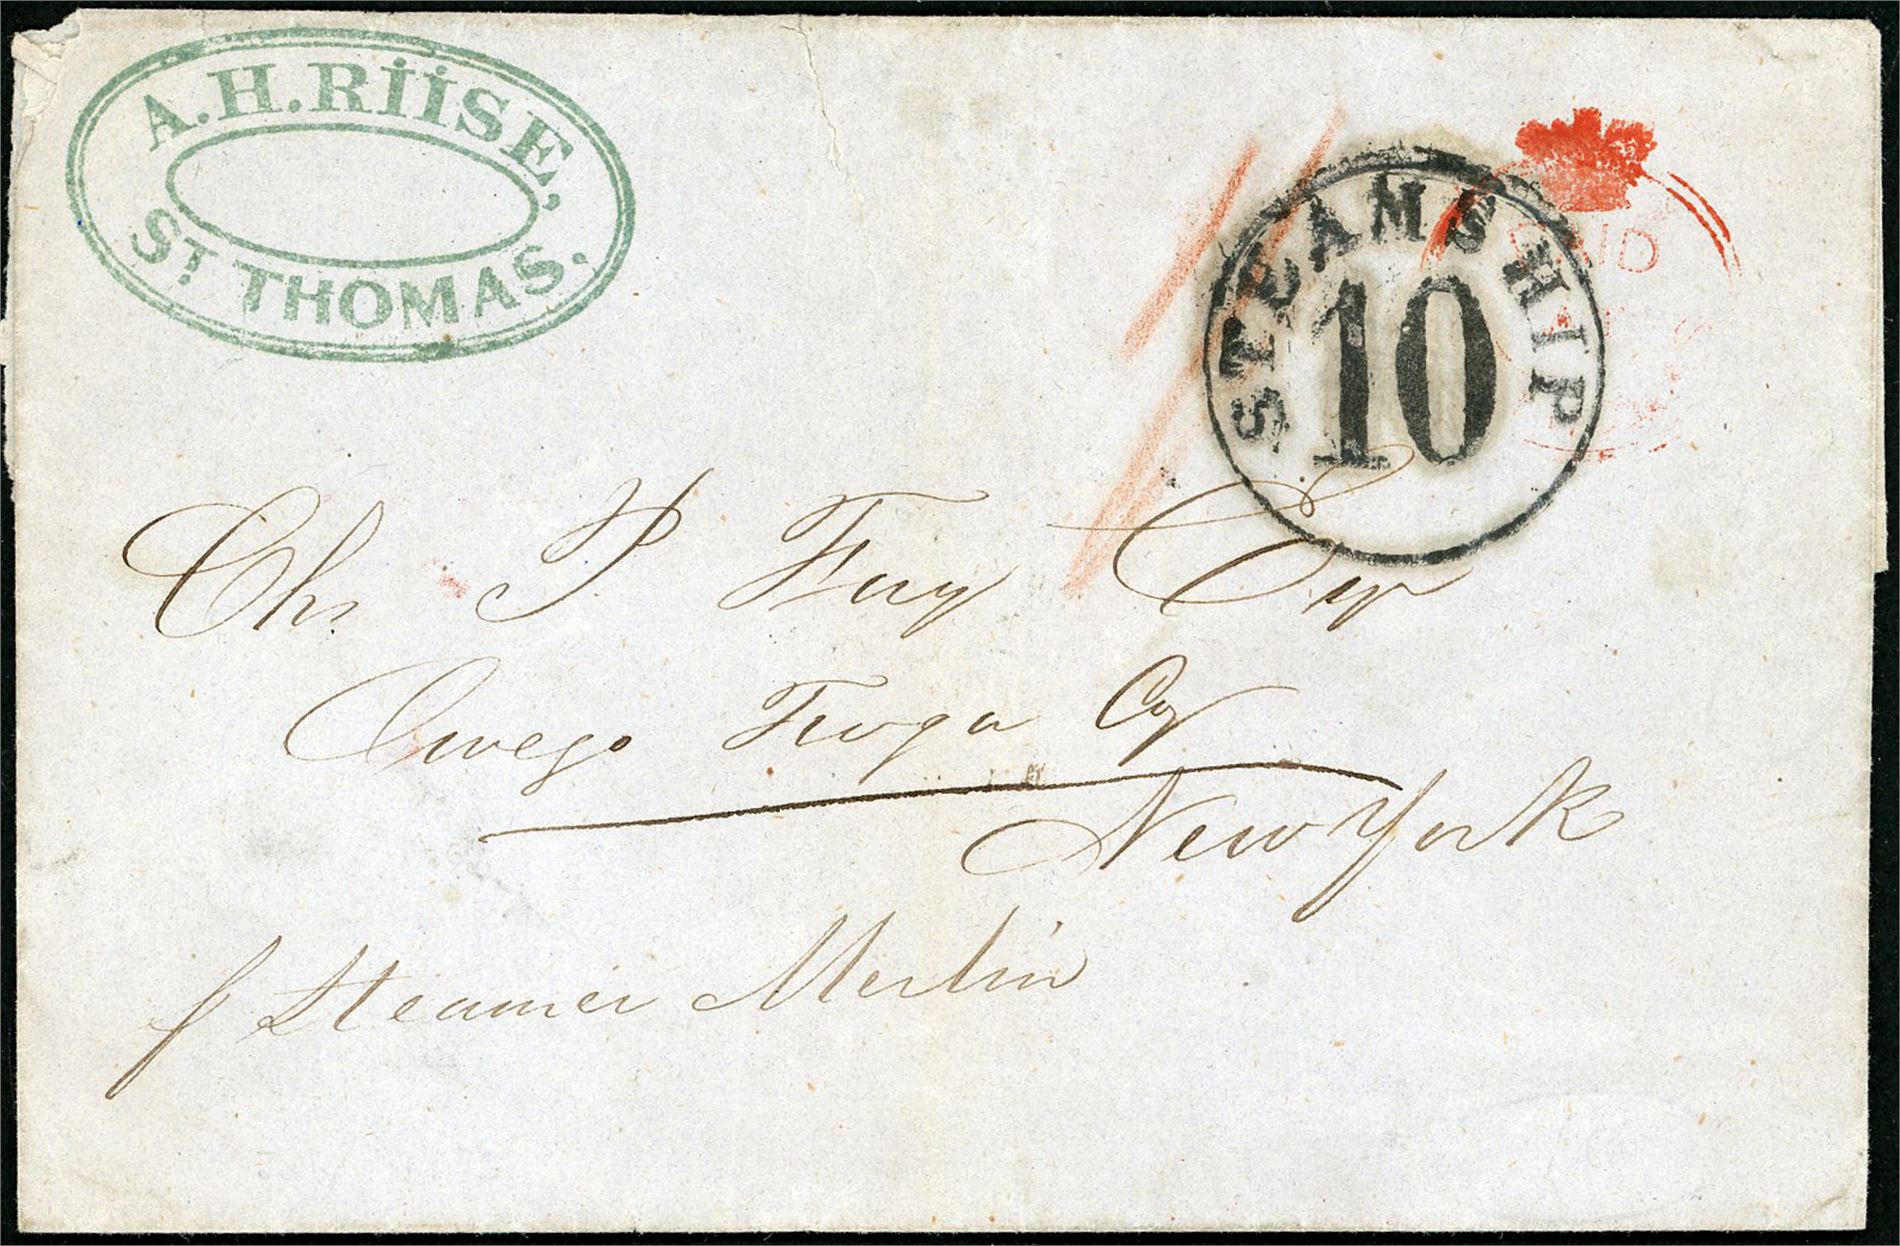 A. H. RIISE,
ST THOMAS.
STEAMSHIP
10
PAID
Chs. P
Owego Tioga Cy
New York
p Steamer Merlin